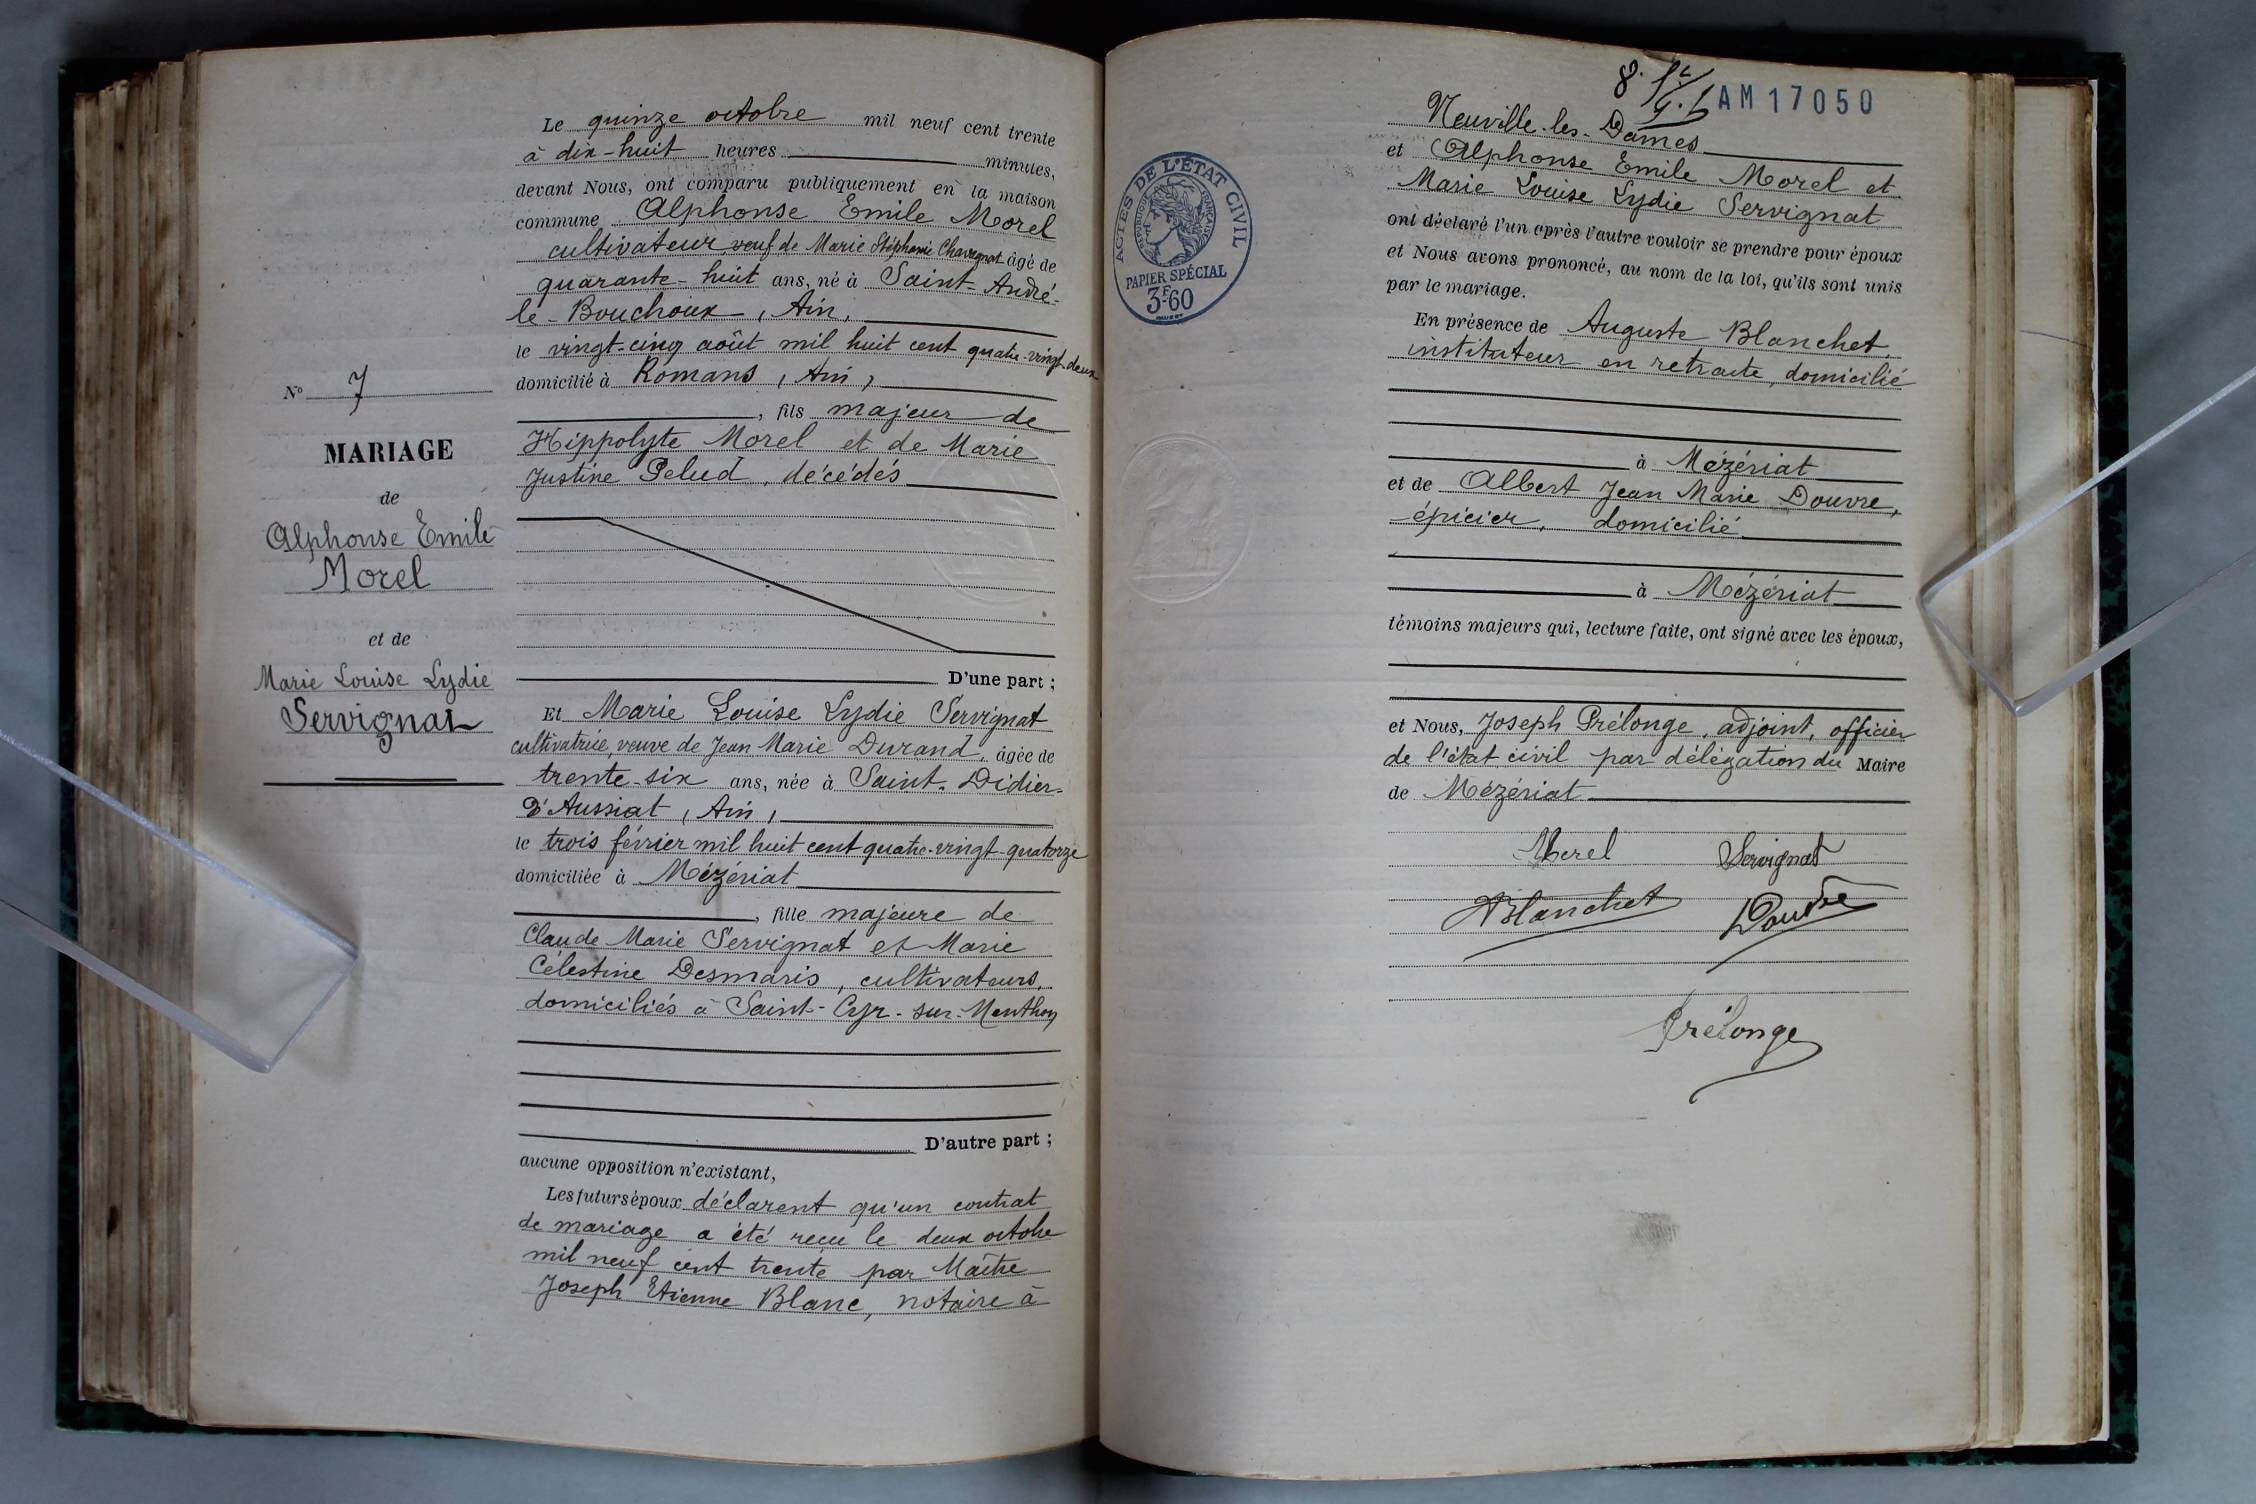 Le quinze octobre mil neuf cent trente
à dix-huit heures minutes,
devant Nous, ont comparu publiquement en la maison
commune Alphonse Emile Morel
cultivateur, veuf de Marie Stéphanie Chavagnat âgé de
quarante-huit ans, né à Saint-André-
le-Bouchoux, Ain,
le vingt-cinq août mil huit cent quatre-vingt-deux
domicilié à Romans, Ain,
, fils majeur de
Hippolyte Morel et de Marie
Justine Pelud, décédés
D'une part ;
N° 7
MARIAGE
de
Alphonse Emile
Morel
et de
Marie Louise Lydie
Servignat
Et Marie Louise Lydie Servignat
cultivatrice, veuve de Jean Marie Durand, âgée de
trente-six ans, née à Saint-Didier-
d'Aussiat, Ain,
le trois février mil huit cent quatre-vingt-quatorze
domiciliée à Mézériat
, fille majeure de
Claude Marie Servignat et Marie
Célestine Desmaris, cultivateurs,
domiciliés à Saint-Cyr-sur-Menthon
D'autre part ;
aucune opposition n'existant,
Les futurs époux déclarent qu'un contrat
de mariage a été reçu le deux octobre
mil neuf cent trente par Maître
Joseph Etienne Blanc, notaire à
8.
AM17050
Neuville-les-Dames
et Alphonse Emile Morel et
Marie Louise Lydie Servignat
ont déclaré l'un après l'autre vouloir se prendre pour époux
et Nous avons prononcé, au nom de la loi, qu'ils sont unis
par le mariage.
ACTES DE L'ÉTAT CIVIL
RÉPUBLIQUE FRANÇAISE
PAPIER SPÉCIAL
3F60
En présence de Auguste Blanchet,
instituteur en retraite, domicilié
à Mézériat
et de Albert Jean Marie Douvre,
épicier, domicilié
à Mézériat
témoins majeurs qui, lecture faite, ont signé avec les époux,
et Nous, Joseph Prélonge, adjoint, officier
de l'état civil par délégation du Maire
de Mézériat
Morel Servignat
ABlanchet Douvre
Prélonge